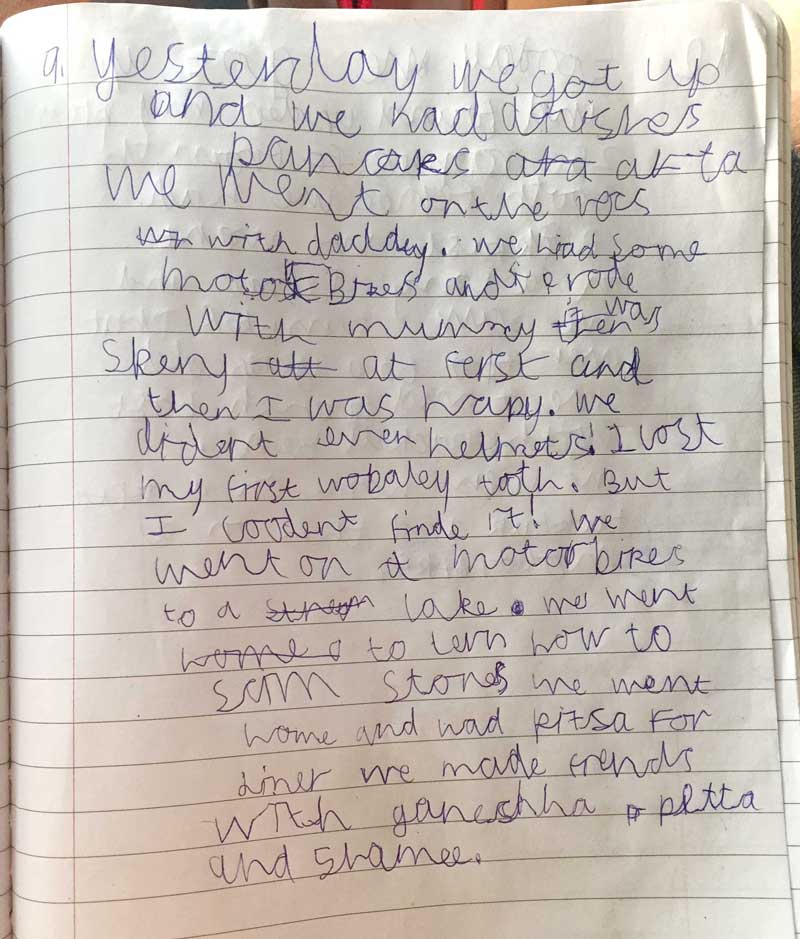 9. yesterday we got up
and we had dilishes
pancaks ata afta
we went on the rocs
wn with daddy. we had some
motor Bikes and i rode
with mummy it was
skery att at ferst and
then I was hapy. we
dident even helmets! I lost
my first wobaley tooth. But
I coodent finde it! we
went on a motorbikes
to a stream lake. we went
home to lern how to
scim stones we went
home and had pitsa For
diner we made frends
with ganeshha pitta
and shamee.